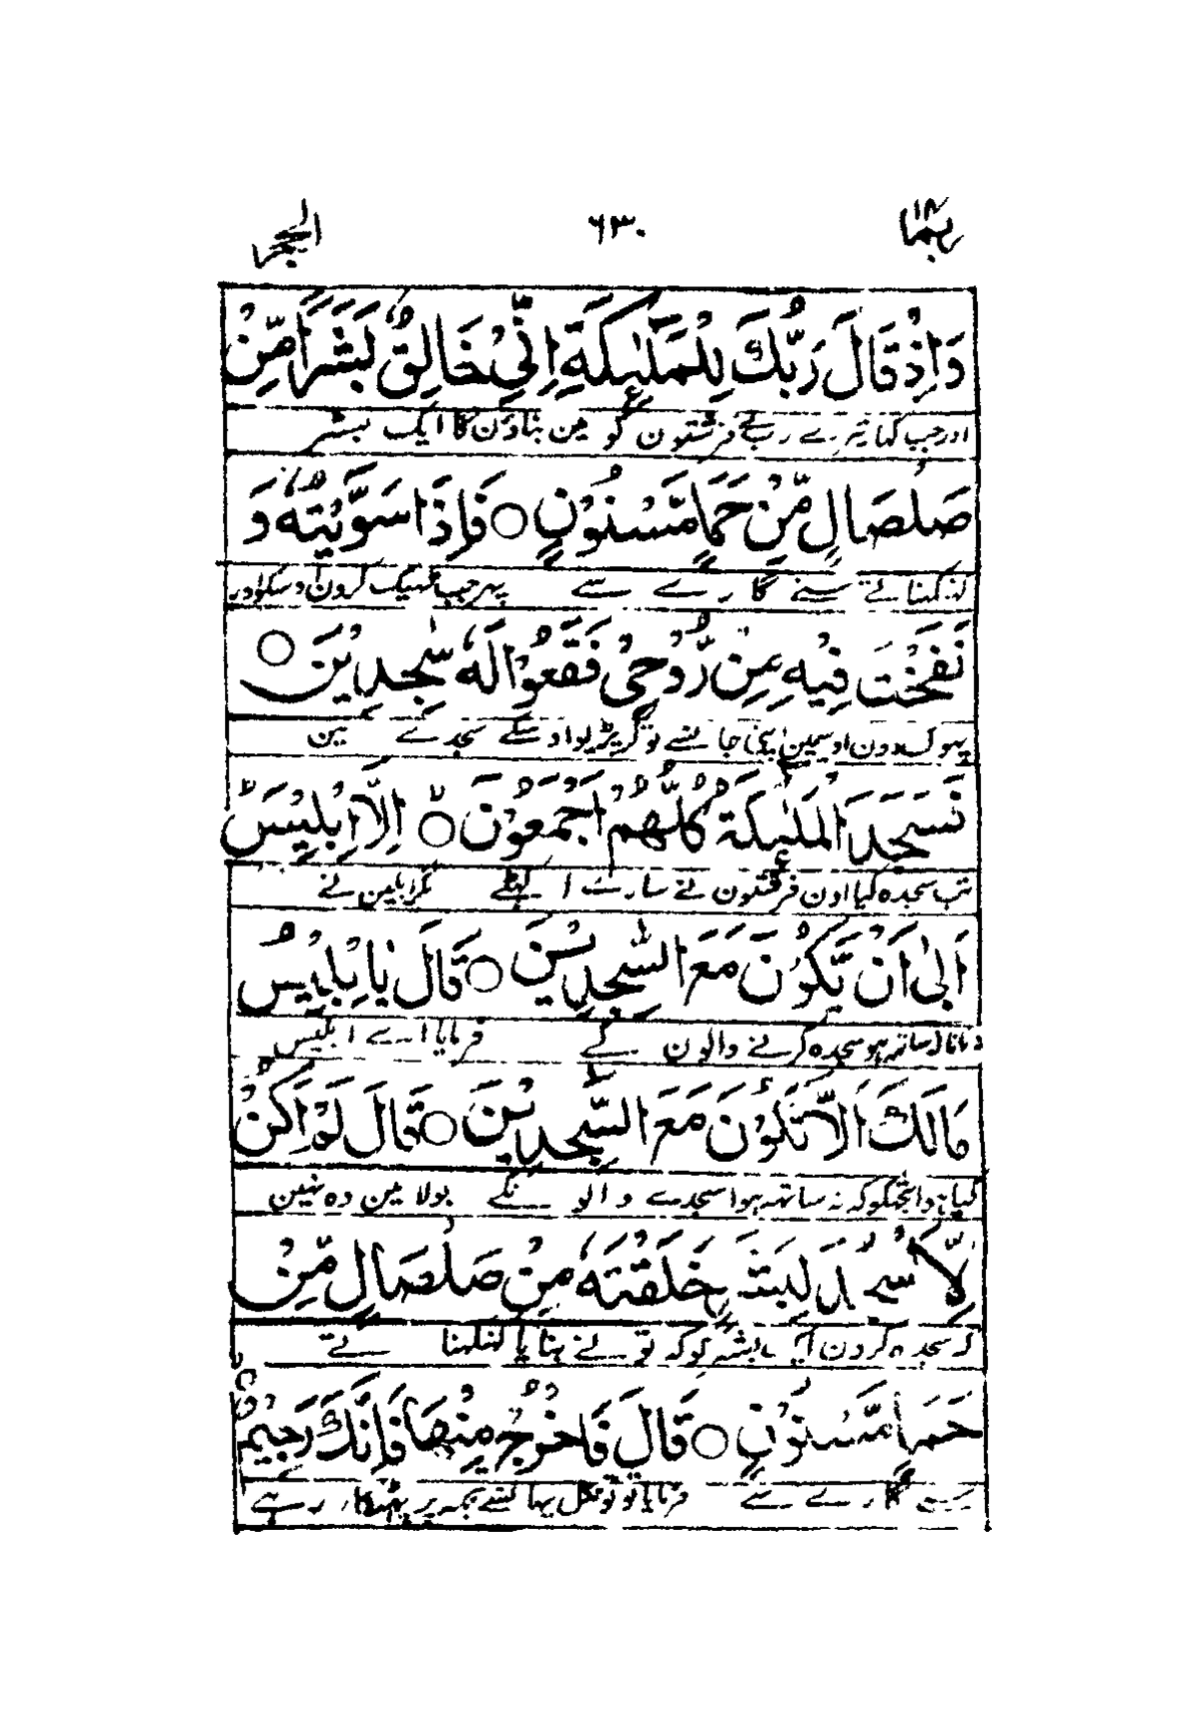 ربما ١٤ ٦٣٠ الحجر
وَاِذْ قَالَ رَبُّكَ لِلْمَلٰٓئِكَةِ اِنِّيْ خَالِقٌۢ بَشَرًا مِّنْ
اور جب کہا تیرے رب نے فرشتون کو مین بناؤن کا ایک بشر
صَلْصَالٍ مِّنْ حَمَاٍ مَّسْنُوْنٍ ○ فَاِذَا سَوَّيْتُهٗ وَ
کہنکہناتے سنے گارے سے پہر جب ٹھیک کرون اوسکو اور
نَفَخْتُ فِيْهِ مِنْ رُّوْحِيْ فَقَعُوْا لَهٗ سٰجِدِيْنَ ○
پہونک دون اوسمین اپنی جان سے تو گر پڑیو اوسکے سجدے مین
فَسَجَدَ الْمَلٰٓئِكَةُ كُلُّهُمْ اَجْمَعُوْنَ ○ اِلَّآ اِبْلِيْسَ
تب سجدہ کیا اون فرشتون نے سارے اکہٹے مگر ابلیس نے
اَبٰٓى اَنْ يَّكُوْنَ مَعَ السّٰجِدِيْنَ ○ قَالَ يٰٓاِبْلِيْسُ
نہ مانا کہ ساتھ ہو سجدہ کرنے والون کے فرمایا اے ابلیس
مَا لَكَ اَلَّا تَكُوْنَ مَعَ السّٰجِدِيْنَ ○ قَالَ لَمْ اَكُنْ
کیا ہوا تجھکو کہ نہ ساتھ ہوا سجدے والونکے بولا مین وہ نہین
لِّاَسْجُدَ لِبَشَرٍ خَلَقْتَهٗ مِنْ صَلْصَالٍ مِّنْ
کہ سجدہ کرون ایک بشر کو کہ تو نے بنایا کہنکہناتے
حَمَاٍ مَّسْنُوْنٍ ○ قَالَ فَاخْرُجْ مِنْهَا فَاِنَّكَ رَجِيْمٌ
سنے گارے سے فرمایا تو تو نکل یہانسے تجھ پر پھٹکار ہے